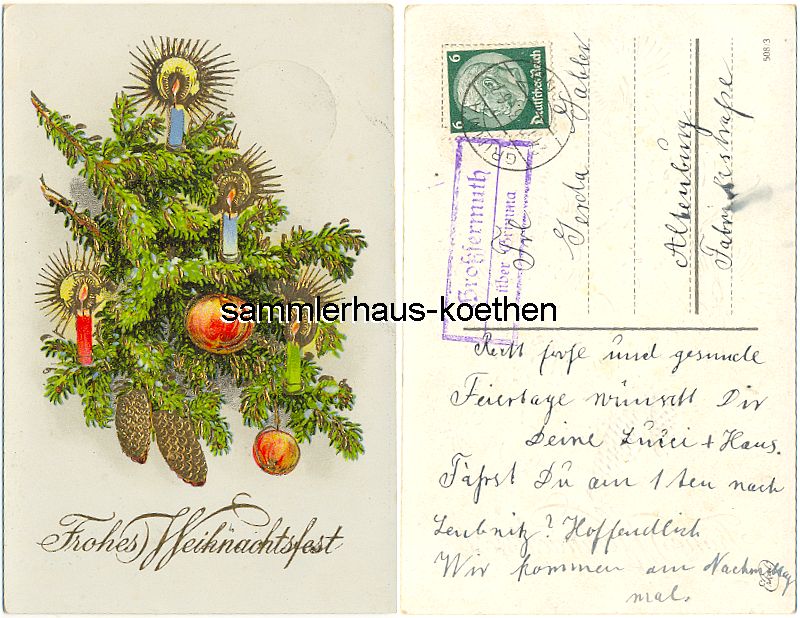 Frohes Weihnachtsfest
sammlerhaus-koethen
6 Deutsches Reich 6
GRIMMA
Großsermuth
über Grimma
5083
Frl.
Gerda Gabler
Altenburg
Fabrikstraße
Recht frohe und gesunde
Feiertage wünscht Dir
Deine Luici + Hans.
Fährst Du am 1ten nach
Leubnitz? Hoffendlich
Wir kommen am Nachmittag
mal.